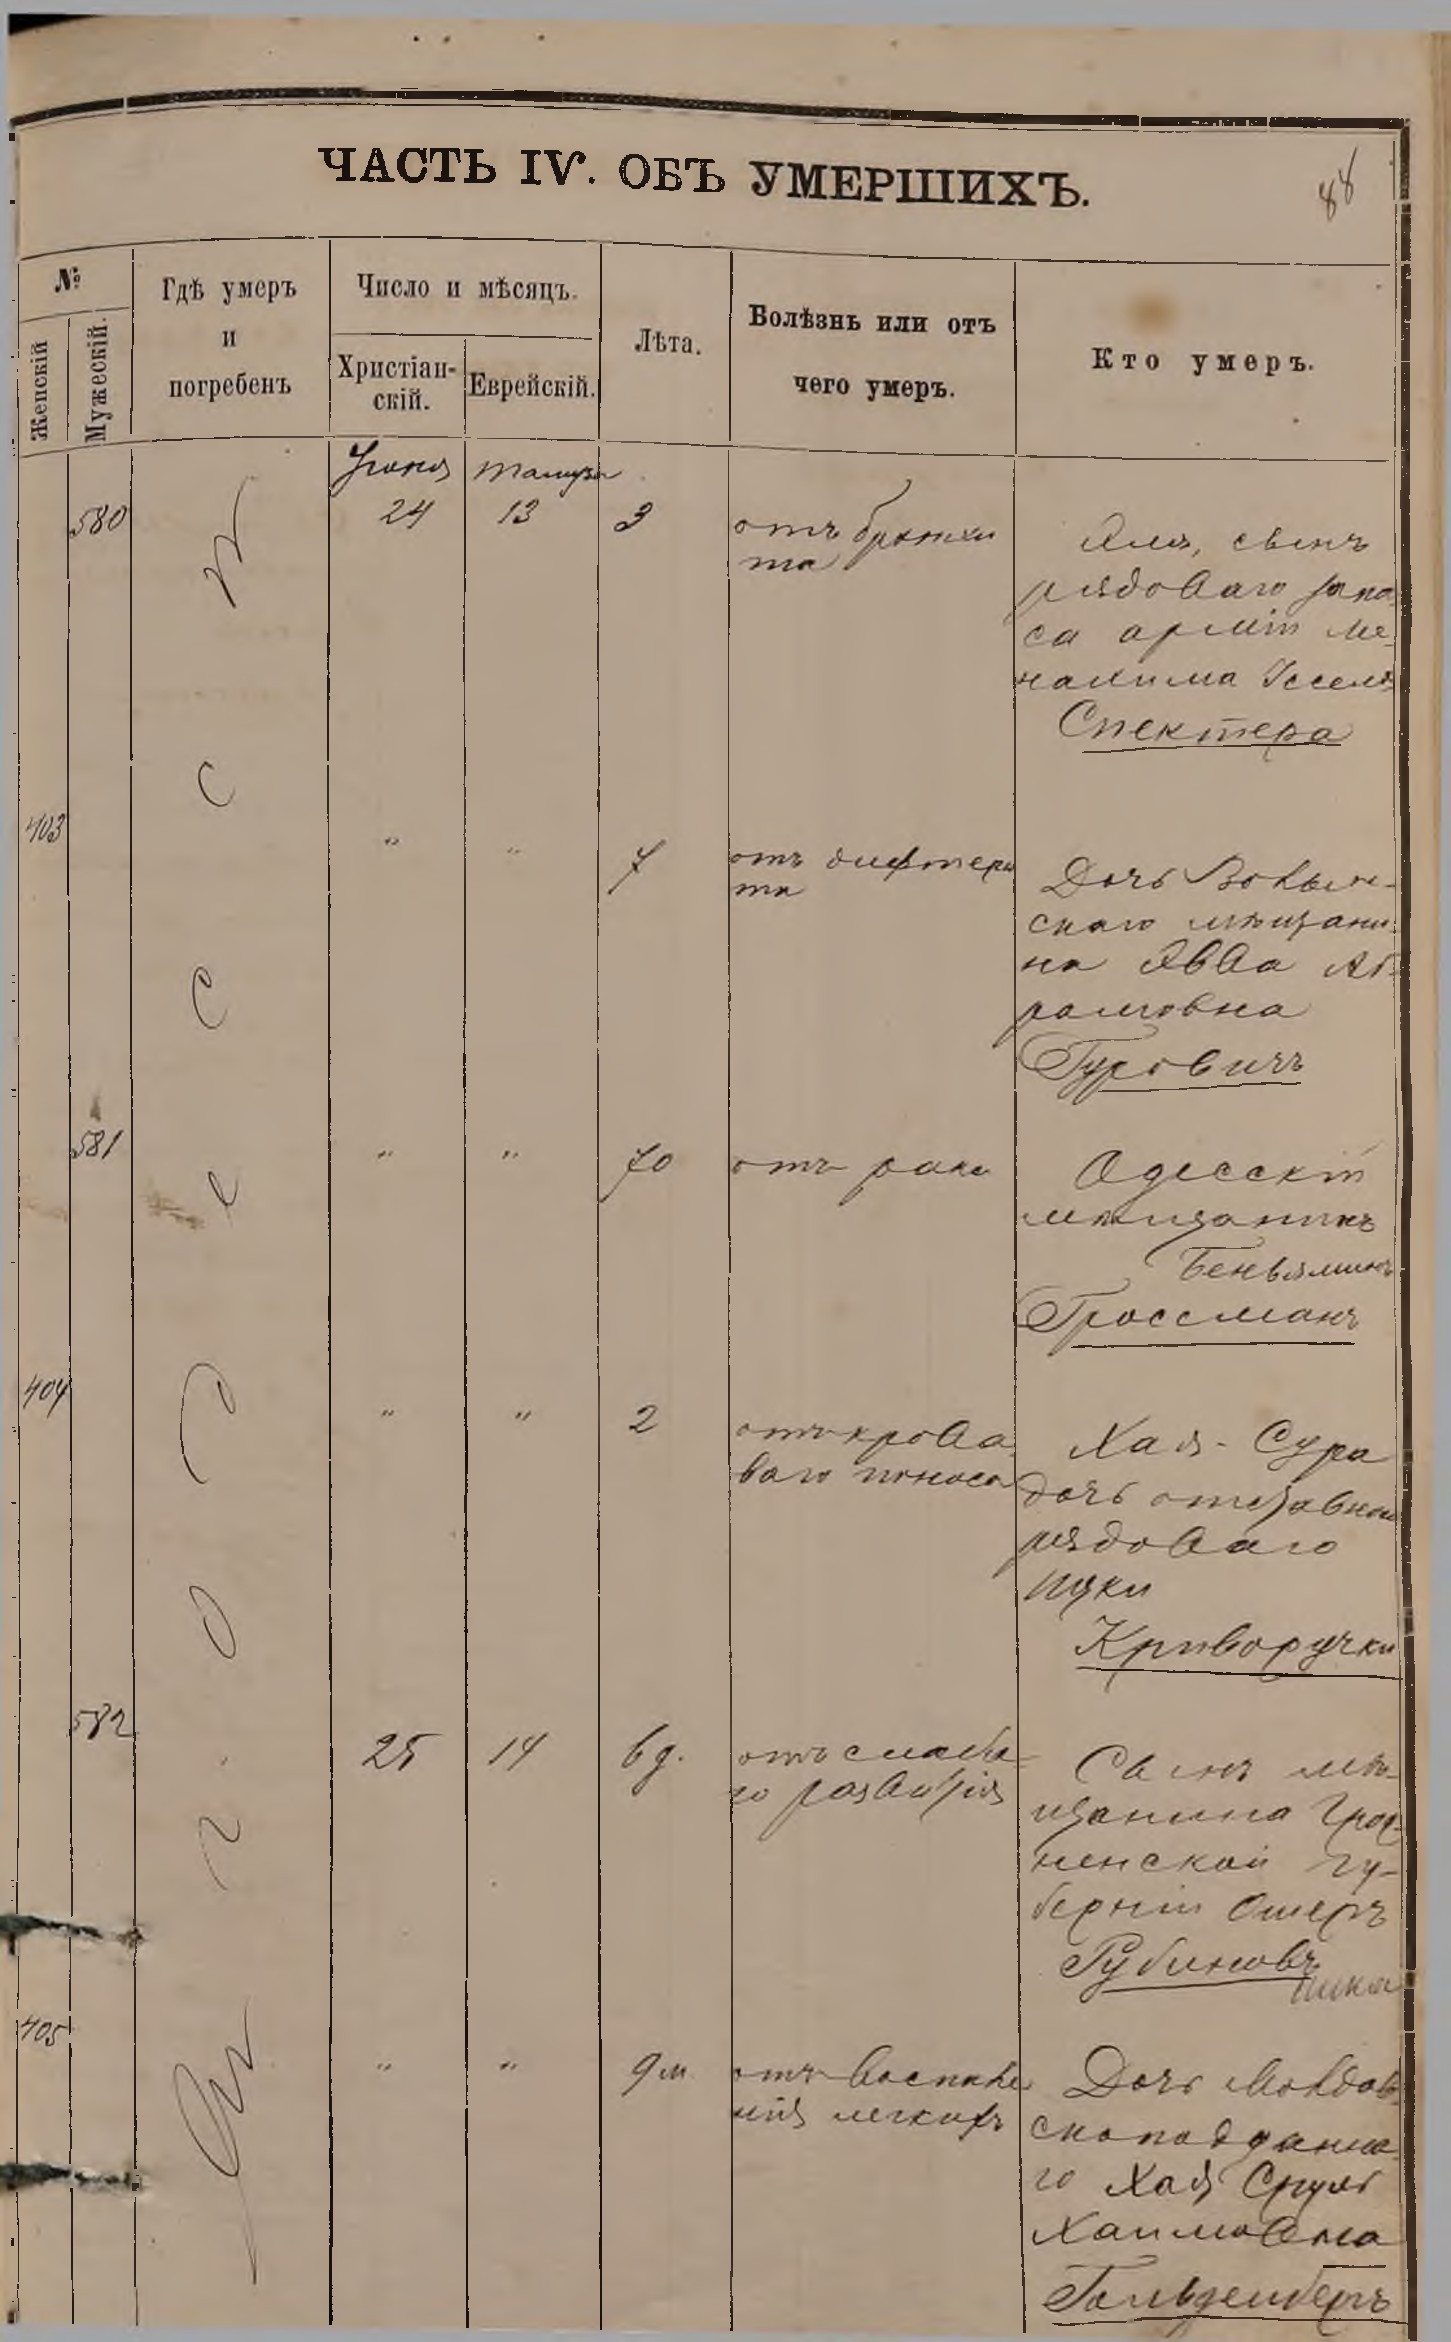 ЧАСТЬ IV. ОБЪ УМЕРШИХЪ.
88
№
Женскій
Мужескій.
Гдѣ умеръ
и
погребенъ
Число и мѣсяцъ.
Христіан-
скій.
Еврейскій.
Лѣта.
Болѣзнь или отъ
чего умеръ.
Кто умеръ.
Іюня
Тамуза
580
24
13
3
отъ бронхи
та
сынъ
рядоваго запа-
са арміи Ме-
нахима
Спектера
403
"
"
7
отъ дифтери
та
Дочь Волын-
скаго мѣщани-
на Аб-
рамовна
Гуровичъ
581
"
"
70
отъ рака
Одесскій
мѣщанинъ
Беньяминъ
Гроссманъ
404
"
"
2
отъ крова
ваго поноса
Хая-Сура
дочь отставнаго
рядоваго
Ицки
Криворучки
582
25
14
6 д.
отъ слаба-
го развитія
Сынъ мѣ-
щанина Грод-
ненской гу-
берніи Ошеръ
Рубиновъ
405
"
"
9 м.
отъ воспале
нія легкихъ
Дочь Молдав
скоподданна-
го Хая
Хаимовна
Гольденбергъ